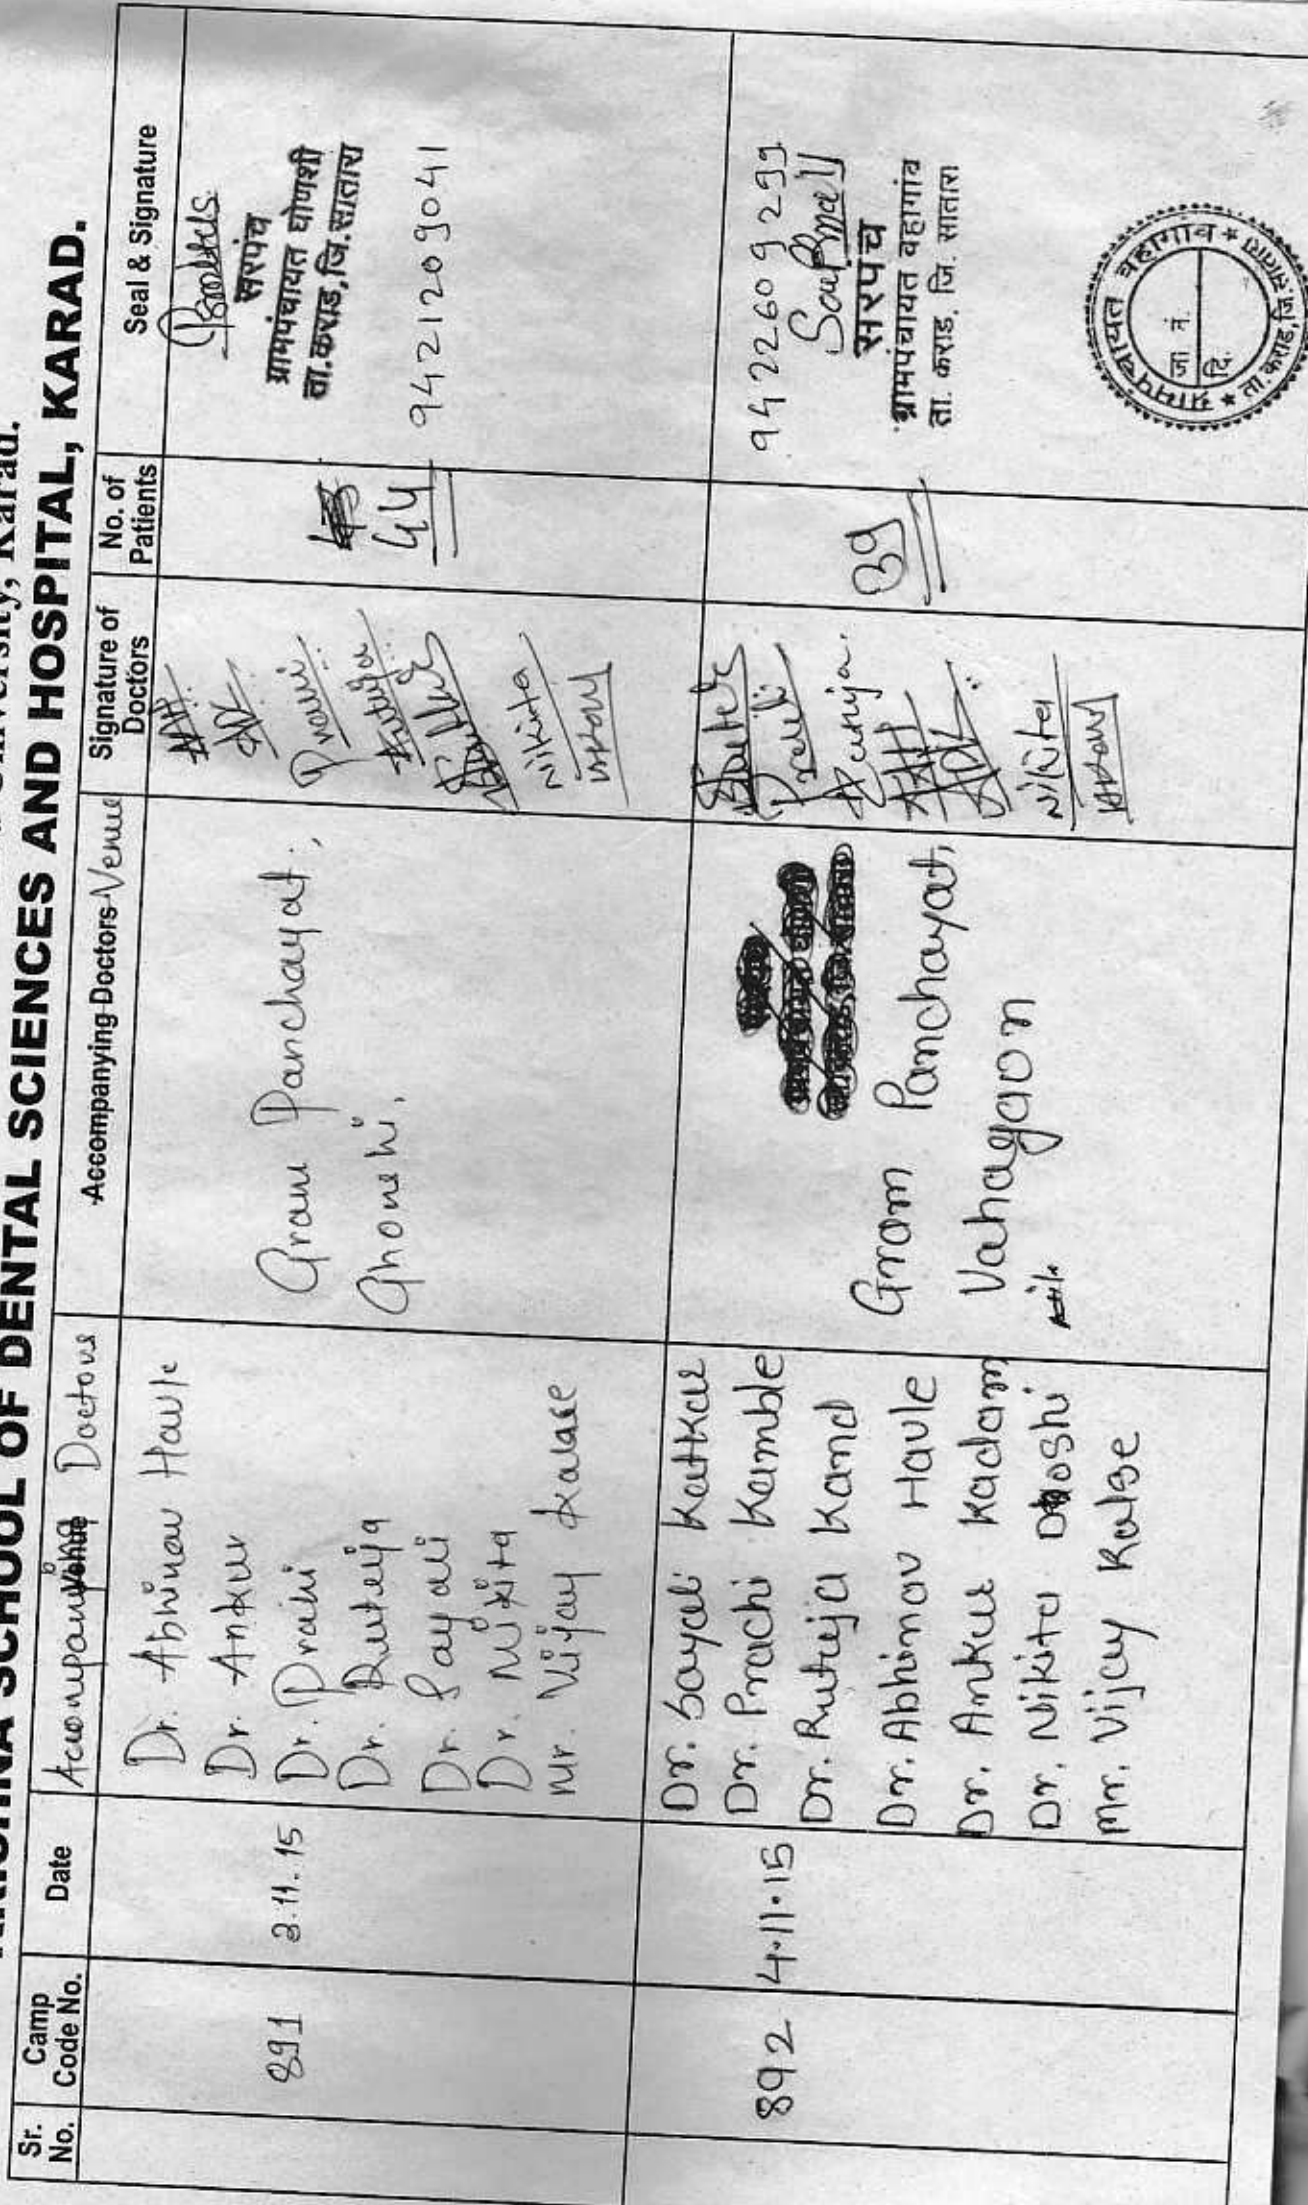 SCHOOL OF DENTAL SCIENCES AND HOSPITAL, KARAD.
Sr. No.
Camp Code No.
Date
Accompanying Doctors
Accompanying Doctors Venue
Signature of Doctors
No. of Patients
Seal & Signature
891
3.11.15
Dr. Abhinav Havle
Dr. Ankur
Dr. Prachi
Dr. Rutuja
Dr. Sayali
Dr. Nikita
Mr. Vijay Kalase
Gram Panchayat,
Ghonshi.
Nikita
44
सरपंच
ग्रामपंचायत घोणशी
ता.कराड,जि.सातारा
9421209041
892
4.11.15
Dr. Sayali Katkar
Dr. Prachi Kamble
Dr. Rutuja Kand
Dr. Abhinav Havle
Dr. Ankur Kadam
Dr. Nikita Doshi
Mr. Vijay Kalse
Gram Panchayat,
Vahagaon
Nikita
39
9422609299
सरपंच
ग्रामपंचायत वहागांव
ता. कराड, जि. सातारा
ग्रामपंचायत वहागांव
जा. नं.
दि.
ता.कराड,जि.सातारा